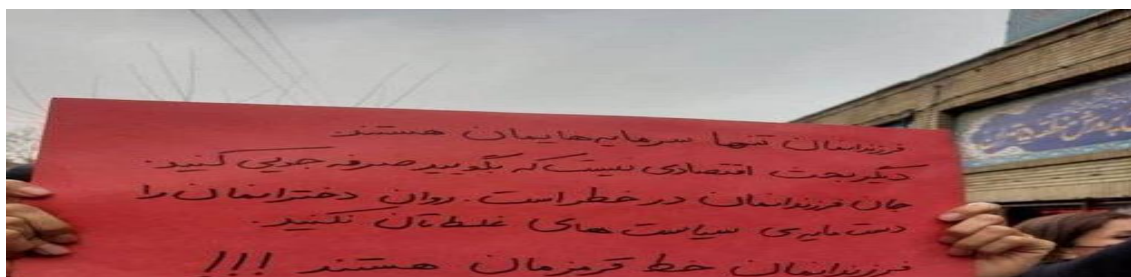 فرزندانمان تنها سرمایه‌هایمان هستند.
دیگر بحث اقتصادی نیست که بگویید صرفه جویی کنید.
جان فرزندانمان در خطر است. روان دخترانمان را
دست مایه‌ی سیاست های غلط تان نکنید.
فرزندانمان خط قرمزمان هستند !!!